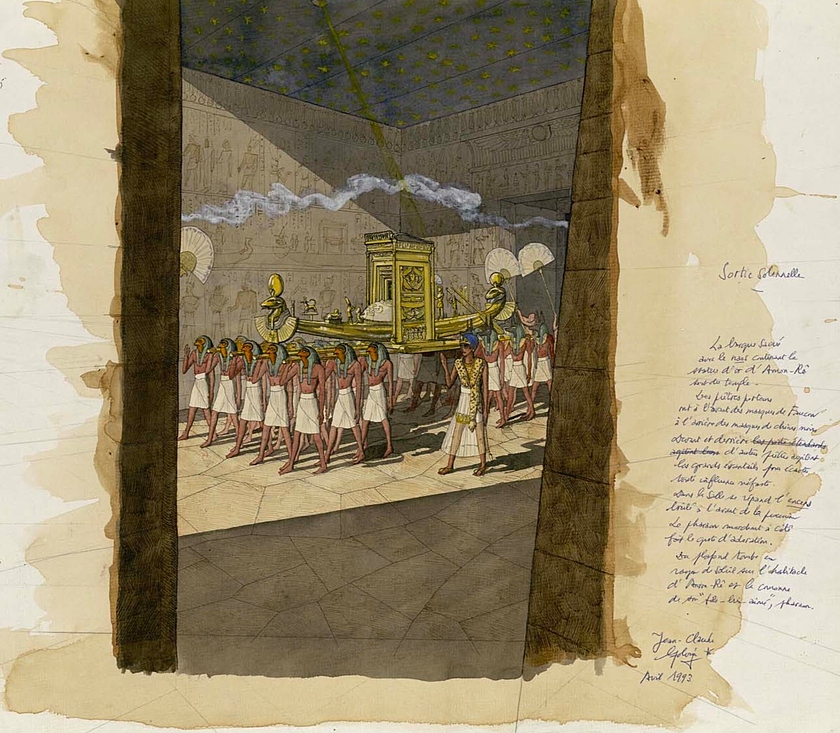 Sortie Solennelle
La barque sacrée
avec le naos contenant la
statue d'or d'Amon-Rê
sort du temple.
Des prêtres porteurs
ont à l'avant des masques de Faucon
à l'arrière des masques de chiens noirs
Devant et derrière d'autres prêtres agitent
les grands éventails pour écarter
toute influence néfaste.
Dans la salle se répand l'encens
brûlé à l'avant de la
Le pharaon marchant à côté
fait le geste d'adoration.
Du plafond tombe un
rayon de soleil sur l'habitacle
d'Amon-Rê et la couronne
de son "fils-bien-aimé", pharaon.
Jean-Claude
Golvin
Avril 1993